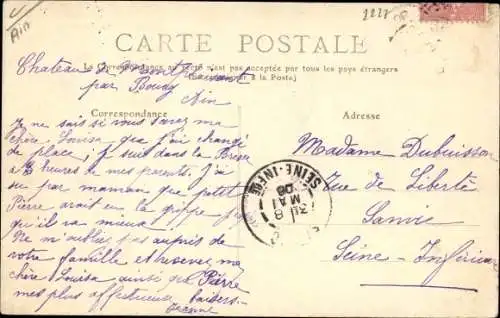 Ain
2227
CARTE POSTALE
La Correspondance au recto n'est pas acceptée par tous les pays étrangers
(Se renseigner à la Poste)
Chateau de Montplaisant
par Bourg
Ain
Correspondance
Adresse
Je ne sais si vous savez ma
chère Louisa que j'ai changé
de place; je suis dans la Bresse
à 3 heures de mes parents. J'ai
su par maman que petit
Pierre avait eu la grippe
qu'il va mieux.
Ne m'oubliez pas auprès de
votre famille et recevez ma
chère Louisa ainsi que Pierre
mes plus affectueux baisers.
Jeanne
Madame Dubuisson
Rue de Liberté
Sanvic
Seine-Inférieure
SEINE-INFRE
8
31
MAI
06